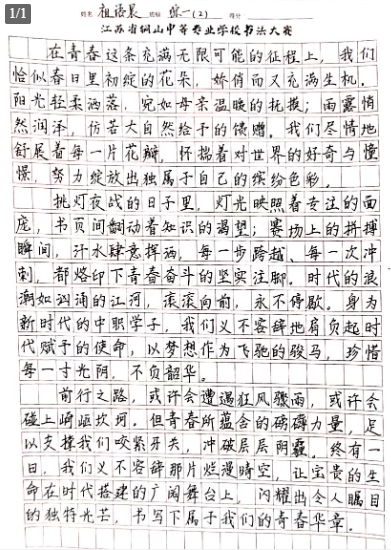 1/1
姓名 祖语晨 班级 综一(2) 得分
江苏省铜山中等专业学校书法大赛
在青春这条充满无限可能的征程上，我们
恰似春日里初绽的花朵，娇俏而又充满生机。
阳光轻柔洒落，宛如母亲温暖的抚摸；雨露悄
然润泽，仿若大自然给予的馈赠。我们尽情地
舒展着每一片花瓣，怀揣着对世界的好奇与憧
憬，努力绽放出独属于自己的缤纷色彩。
挑灯夜战的日子里，灯光映照着专注的面
庞，书页间翻动着知识的渴望；赛场上的拼搏
瞬间，汗水肆意挥洒，每一步跨越、每一次冲
刺，都烙印下青春奋斗的坚实注脚。时代的浪
潮如汹涌的江河，滚滚向前，永不停歇。身为
新时代的中职学子，我们义不容辞地肩负起时
代赋予的使命，以梦想作为飞驰的骏马，珍惜
每一寸光阴，不负韶华。
前行之路，或许会遭遇狂风骤雨，或许会
碰上崎岖坎坷。但青春所蕴含的磅礴力量，足
以支撑我们咬紧牙关，冲破层层阴霾。终有一
日，我们义不容辞那片烂漫晴空，让宝贵的生
命在时代搭建的广阔舞台上，闪耀出令人瞩目
的独特光芒，书写下属于我们的青春华章。